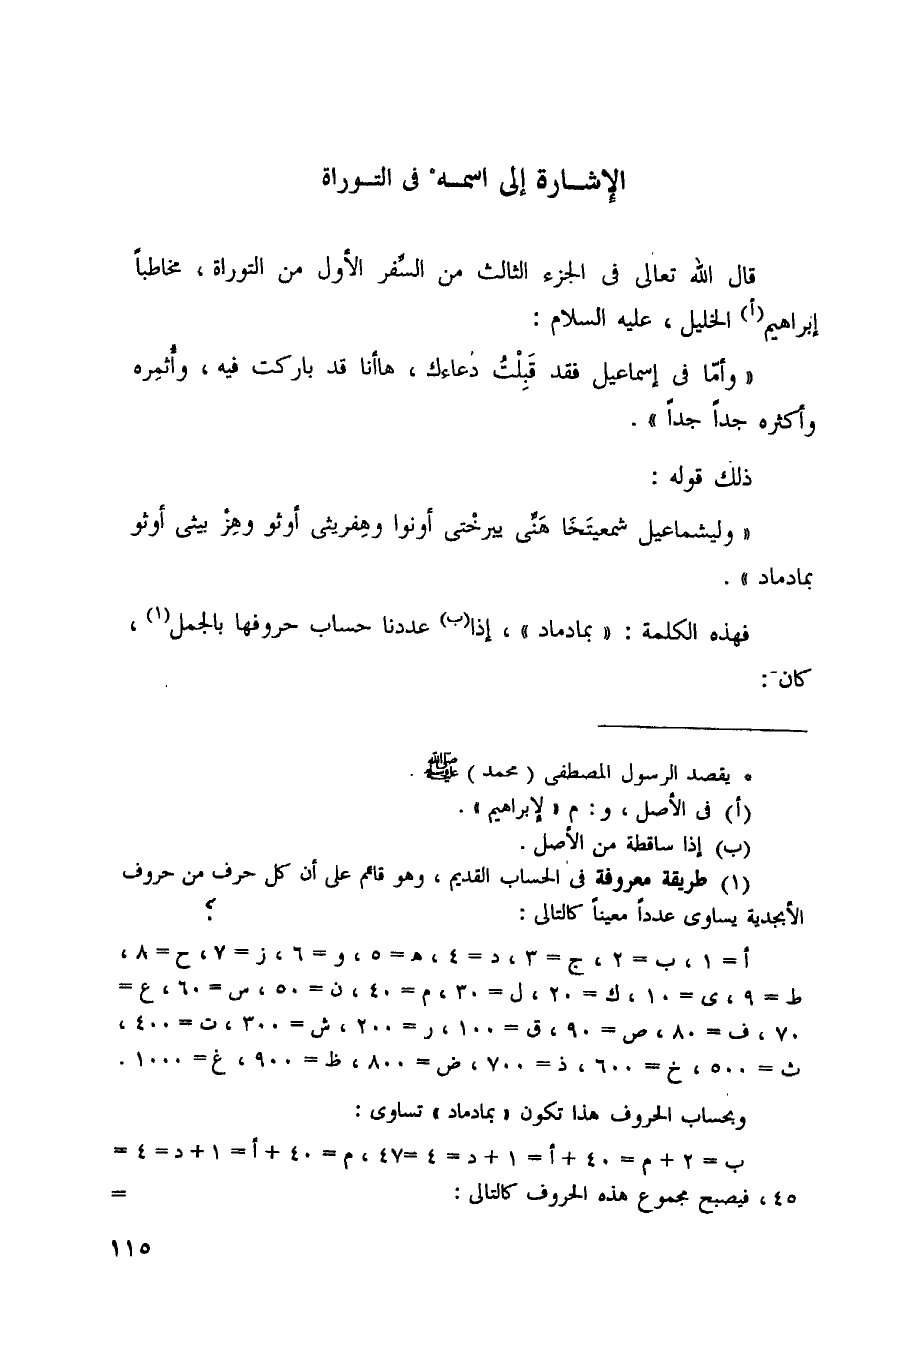 الإشـارة إلى اسمـه* فى التـوراة
قال الله تعالى فى الجزء الثالث من السِّفر الأول من التوراة ، مخاطباً
إبراهيم(أ) الخليل ، عليه السلام :
« وأمّا فى إسماعيل فقد قَبِلْتُ دُعاءك ، هاأنا قد باركت فيه ، وأُثمِره
وأكثره جداً جداً » .
ذلك قوله :
« وليشماعيل شمعيتَخَا هَنِّى بيرخْتى أونوا وهِفريثى أوثو وهِرْ بيثى أوثو
بمادماد » .
فهذه الكلمة : « بمادماد » ، إذا(ب) عددنا حساب حروفها بالجمل(١) ،
كان :
* يقصد الرسول المصطفى ( محمد ) ﷺ .
(أ) فى الأصل ، و : م « لإبراهيم » .
(ب) إذا ساقطة من الأصل .
(١) طريقة معروفة فى الحساب القديم ، وهو قائم على أن كل حرف من حروف
الأبجدية يساوى عدداً معيناً كالتالى :
أ = ١ ، ب = ٢ ، ج = ٣ ، د = ٤ ، ه = ٥ ، و = ٦ ، ز = ٧ ، ح = ٨ ،
ط = ٩ ، ى = ١٠ ، ك = ٢٠ ، ل = ٣٠ ، م = ٤٠ ، ن = ٥٠ ، س = ٦٠ ، ع =
٧٠ ، ف = ٨٠ ، ص = ٩٠ ، ق = ١٠٠ ، ر = ٢٠٠ ، ش = ٣٠٠ ، ت = ٤٠٠ ،
ث = ٥٠٠ ، خ = ٦٠٠ ، ذ = ٧٠٠ ، ض = ٨٠٠ ، ظ = ٩٠٠ ، غ = ١٠٠٠ .
وبحساب الحروف هذا تكون « بمادماد » تساوى :
ب = ٢ + م = ٤٠ + أ = ١ + د = ٤ = ٤٧ ، م = ٤٠ + أ = ١ + د = ٤ =
٤٥ ، فيصبح مجموع هذه الحروف كالتالى : =
١١٥